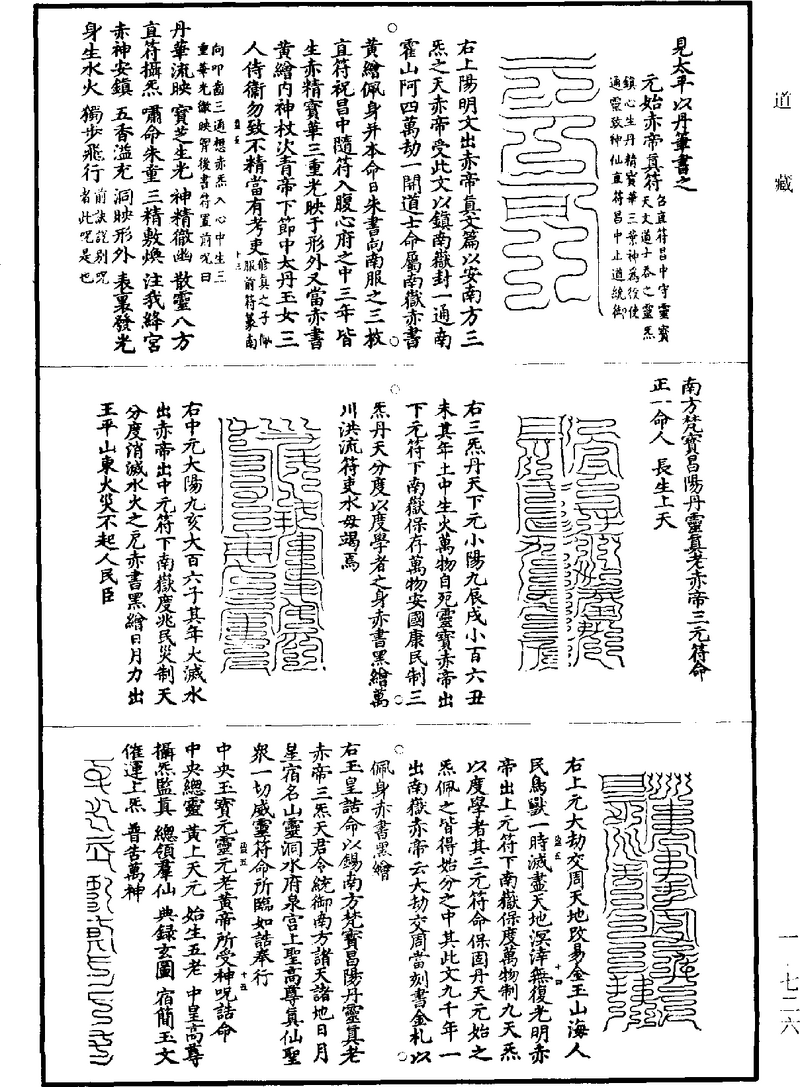 道藏
見太平以丹筆書之
元始赤帝真符
召直符昌中守靈寶
天文道士吞之靈炁
鎮心生丹精寶華三葉神為役使
通靈致神仙直符昌中主道統御
右上陽明文出赤帝真文篇以安南方三
炁之天赤帝受此文以鎮南嶽封一通南
霍山阿四萬劫一開道士命屬南嶽赤書
黃繒佩身并本命日朱書向南服之三枚
直符祝昌中隨符入腹心府之中三年皆
生赤精寶華三重光映于形外又當赤書
黃繒內神杖次青帝下節中太丹玉女三
人侍衛勿致不精當有考吏
修真之子佩
服前符篆南
向叩齒三通想赤炁入心中生三
重華光徹映胷後書符置前呪曰
丹華流映 寶芝生光 神精徹幽 散靈八方
直符攝炁 嘯命朱童 三精敷煥 注我絳宮
赤神安鎮 五香溢充 洞映形外 表裏發光
身生水火 獨步飛行
前訣說別呪
者此呪是也
南方梵寶昌陽丹靈真老赤帝三元符命
正一命人 長生上天
右三炁丹天下元小陽九辰戌小百六丑
未其年土中生火萬物自死靈寶赤帝出
下元符下南嶽保存萬物安國康民制三
炁丹天分度以度學者之身赤書黑繒萬
川洪流符吏水母竭焉
右中元大陽九亥大百六子其年火滅水
出赤帝出中元符下南嶽度兆民災制天
分度消滅水火之危赤書黑繒日月力出
王平山東火災不起人民臣
右上元大劫交周天地改易金玉山海人
民鳥獸一時滅盡天地溟涬無復光明赤
帝出上元符下南嶽保度萬物制九天炁
以度學者其三元符命保固丹天元始之
炁佩之皆得始分之中其此文九千年一
出南嶽赤帝云大劫交周當刻書金札以
佩身赤書黑繒
右玉皇誥命以錫南方梵寶昌陽丹靈真老
赤帝三炁天君令統御南方諸天諸地日月
星宿名山靈洞水府泉宮上聖高尊真仙聖
眾一切威靈符命所臨如誥奉行
中央玉寶元靈元老黃帝所受神呪誥命
中央總靈 黃上天元 始生五老 中皇高尊
攝炁監真 總領羣仙 典錄玄圖 宿簡玉文
催運上炁 普告萬神
一·七二六